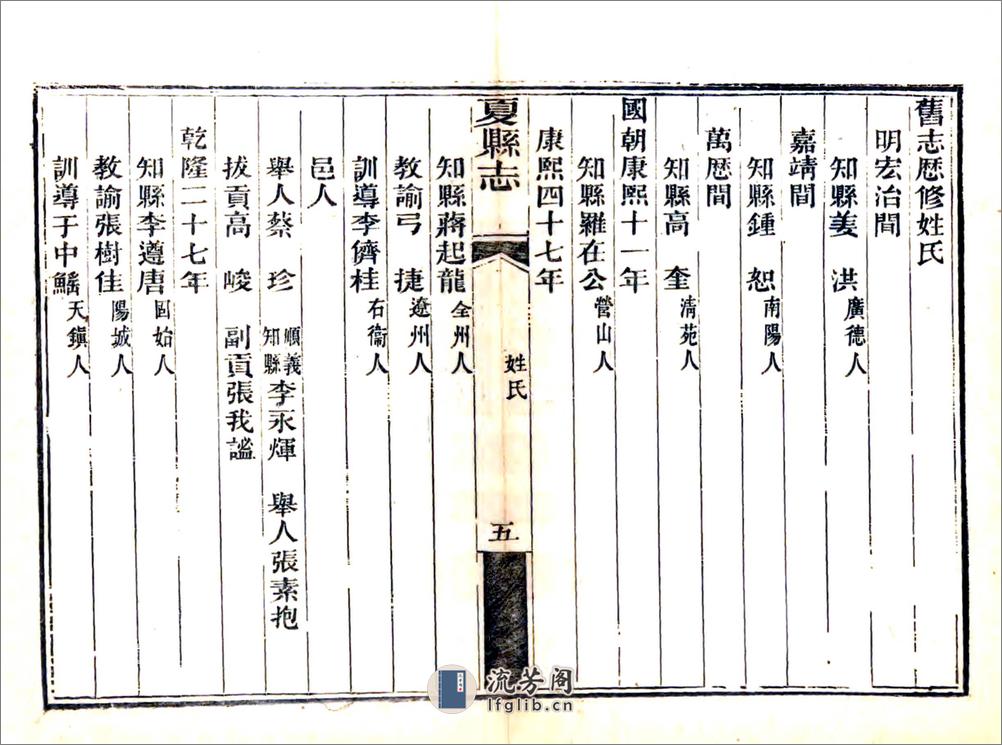 舊志歴修姓氏
明宏治間
知縣姜　洪廣德人
嘉靖間
知縣鍾　恕南陽人
萬歴間
知縣高　奎清苑人
國朝康熙十一年
知縣羅在公營山人
康熙四十七年
夏縣志
姓氏
五
知縣蔣起龍全州人
教諭弓　捷遼州人
訓導李儕桂右衞人
邑人
舉人蔡　珍順義知縣李永煇　舉人張素抱
拔貢高　峻　副貢張我謐
乾隆二十七年
知縣李遵唐固始人
教諭張樹佳陽城人
訓導于中天鎮人
流芳阁
lfglib.cn